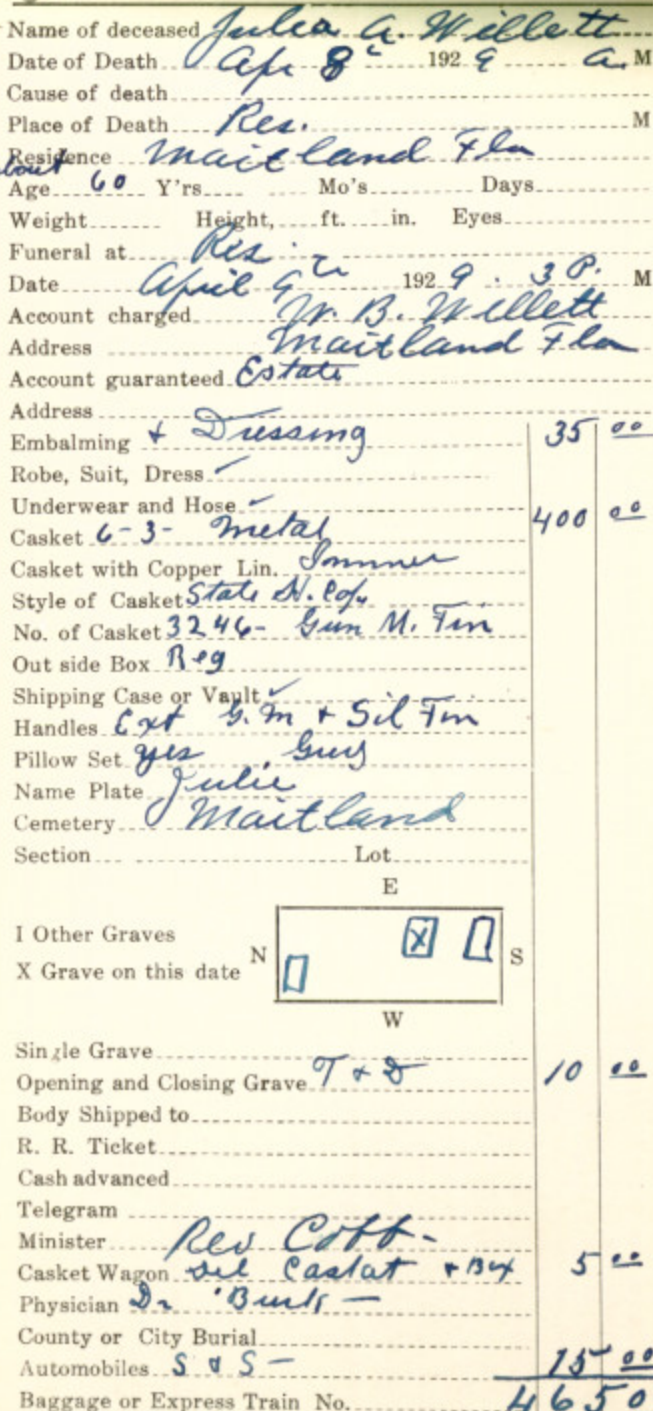 Name of deceased Julia A. Willett
Date of Death Apr 8" 1929 A. M
Cause of death
Place of Death Res. M
Residence Maitland Fla
about
Age 60 Y'rs Mo's Days
Weight Height, ft. in. Eyes
Funeral at Res.
Date April 9th 1929. 3 P. M
Account charged W. B. Willett
Address Maitland Fla
Account guaranteed Estate
Address
Embalming + Dressing 35 00
Robe, Suit, Dress ✓
Underwear and Hose ✓
Casket 6-3- Metal 400 00
Casket with Copper Lin.
Style of Casket State
No. of Casket 3246- Gun M. Fin
Out side Box Reg
Shipping Case or Vault ✓
Handles Ext G. M + Sil Fin
Pillow Set yes
Name Plate Julie
Cemetery Maitland
Section Lot
E
I Other Graves
X Grave on this date
N X S
W
Single Grave
Opening and Closing Grave T + D 10 00
Body Shipped to
R. R. Ticket
Cash advanced
Telegram
Minister Rev Cobb-
Casket Wagon Del Casket + Box 5 00
Physician Dr Burk -
County or City Burial
Automobiles S & S - 15 00
Baggage or Express Train No. 46 50